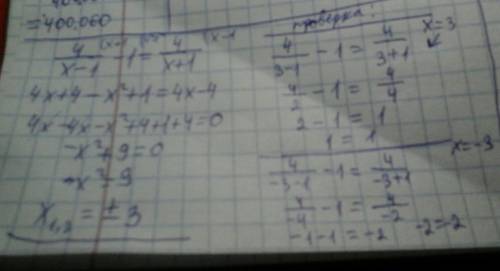 =400,060
4/(x-1) - 1 = 4/(x+1)
4x+4-x²+1=4x-4
4x-4x-x²+4+1+4=0
-x²+9=0
-x²=9
x₁,₂=±3
проверка:
x=3
4/(3-1) - 1 = 4/(3+1)
4/2 - 1 = 4/4
2-1=1
1=1
x=-3
4/(-3-1) - 1 = 4/(-3+1)
4/-4 - 1 = 4/-2
-1-1=-2 -2=-2